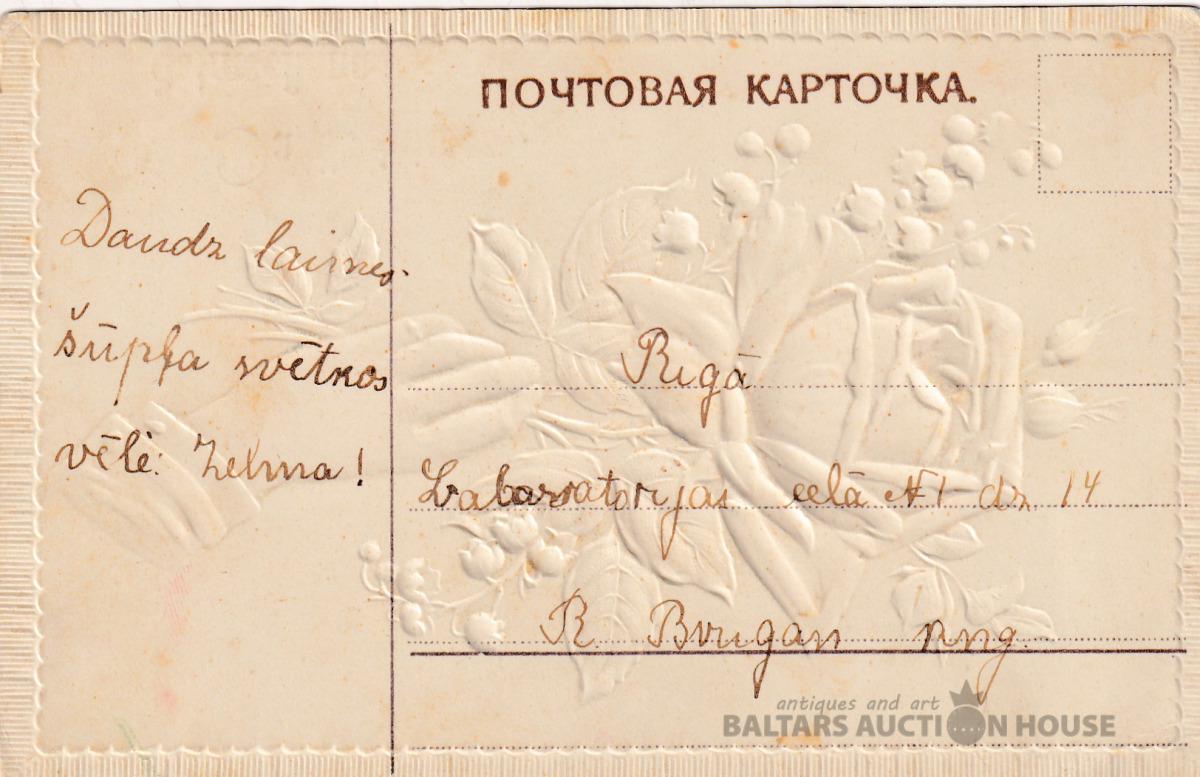 ПОЧТОВАЯ КАРТОЧКА.
Daudz laimes
šūpļa svētkos
vēlē: Zelma!
Rīgā
Labaratorijas celā №1 dz 14
R. Brugan kng.
antiques and art
BALTARS AUCTION HOUSE